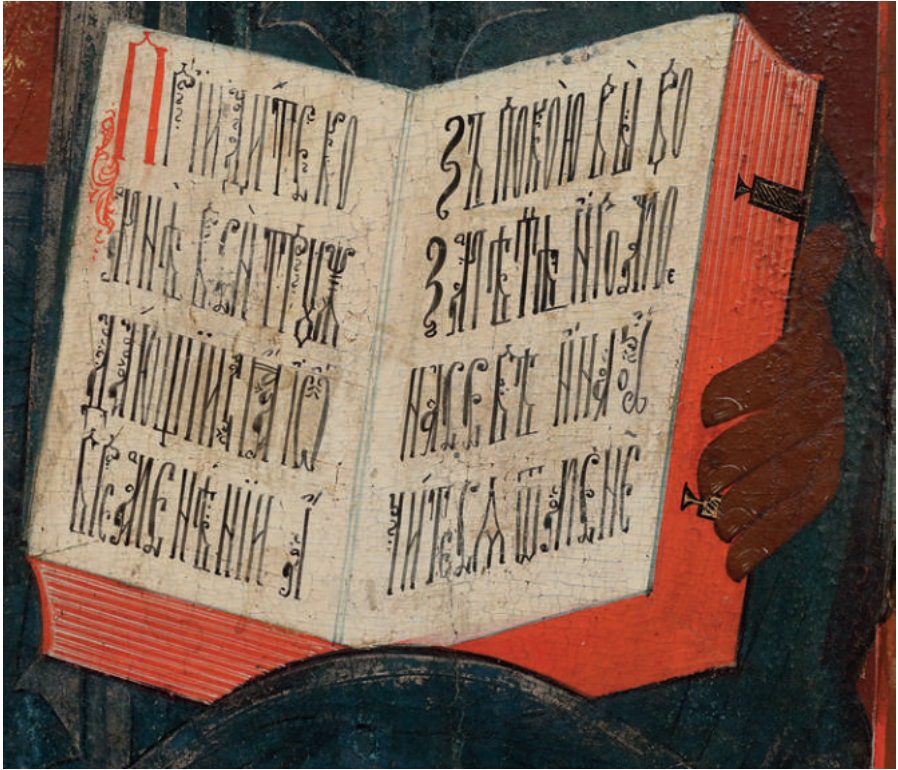 Прїидите ко
мнѣ вси трꙋж
дающиисѧ и ѡ
бременѣнїи и а
зъ покою вы во
змѣте иго мое
на себѣ и наꙋ
читесѧ ѿ мене